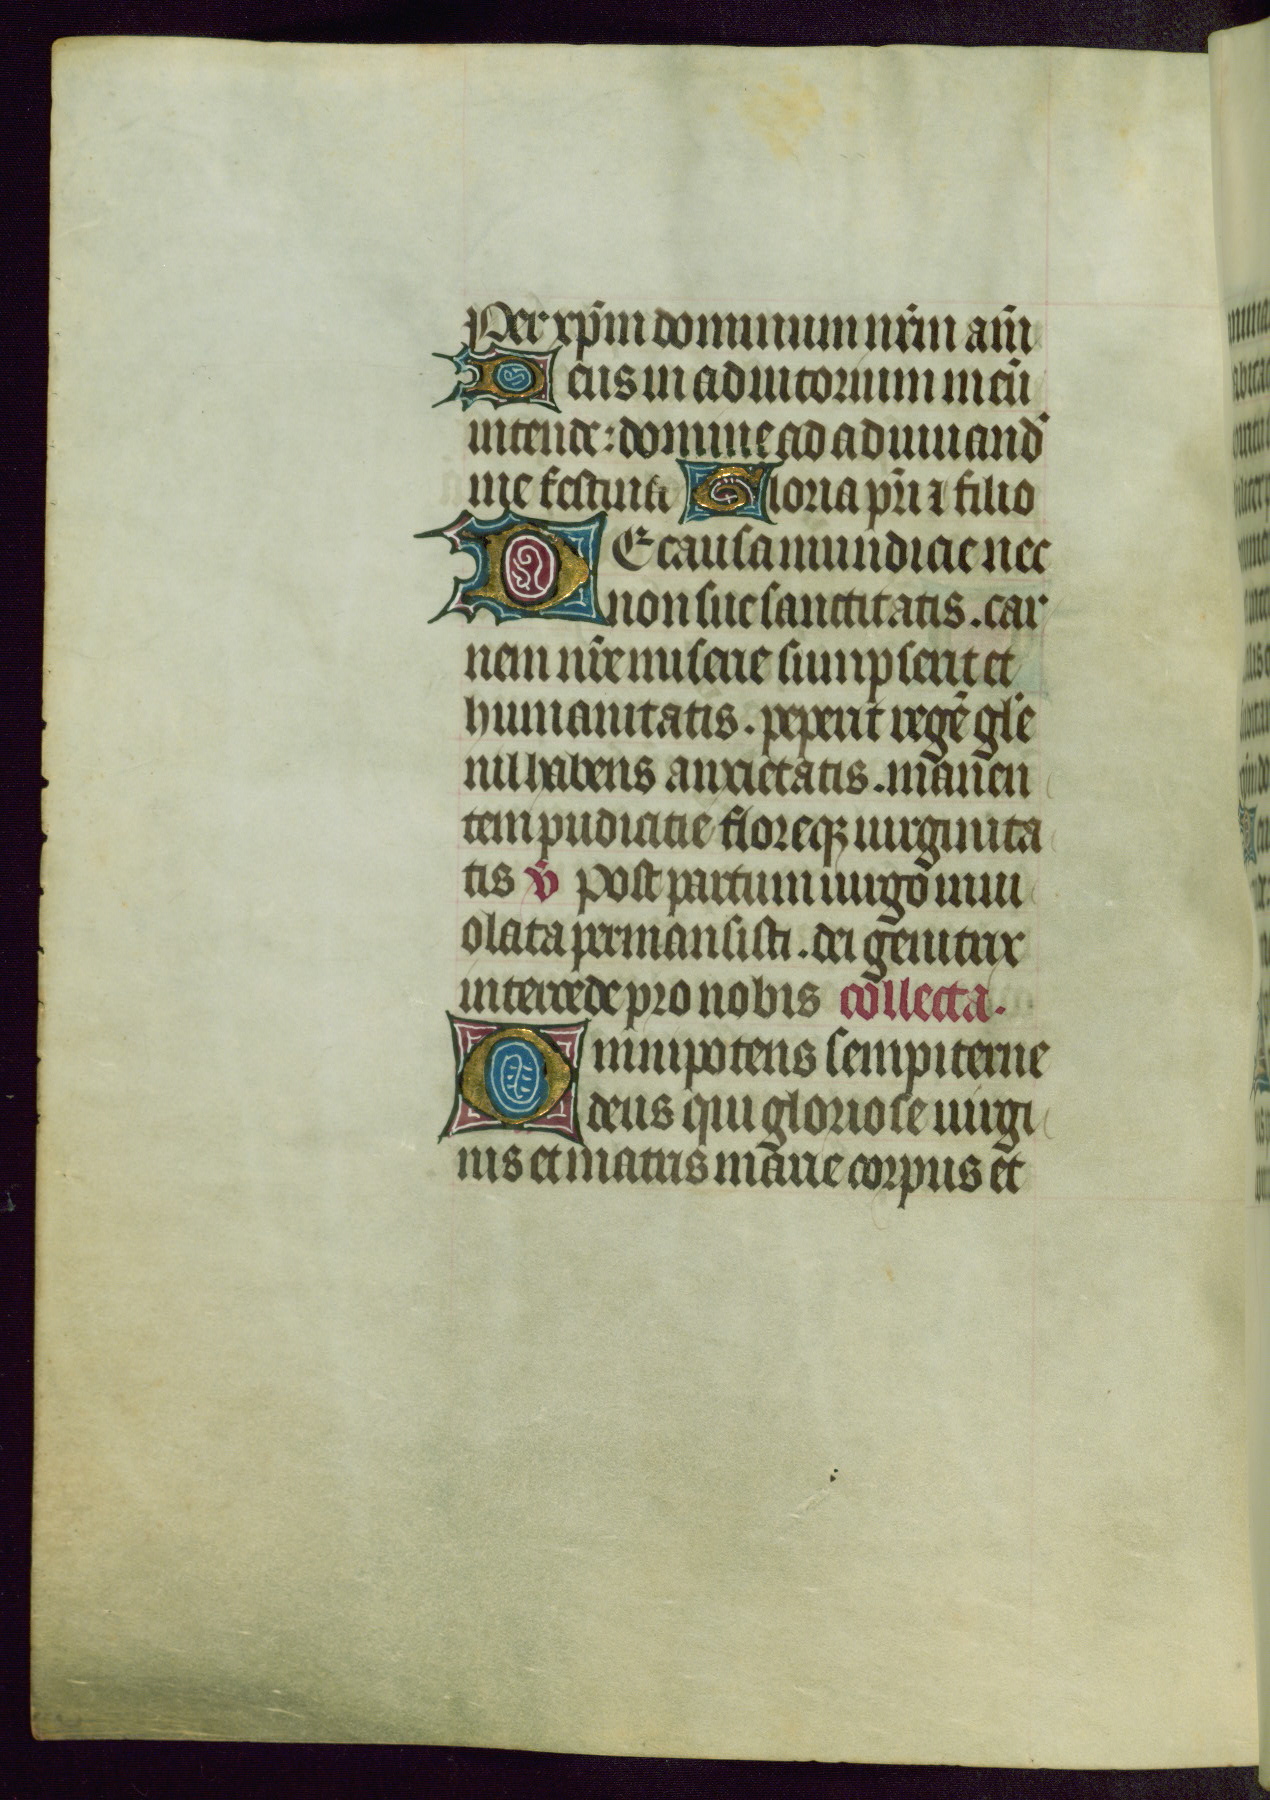 Per xp̄m dominum nr̄m am̄
Deus in adiutorium meū
intende: domine ad adiuuand'
me festina Gloria pr̄i ⁊ filio
DE causa mundicie nec
non sue sanctitatis. car
nem nr̄e miserie sumpserit et
humanitatis. peperit regē gl'e
nil habens anxietatis. manen
tem pudicitie floreqꝫ uirginita
tis v̄ post partum uirgo inui
olata permansisti. dei genitrix
intercede pro nobis collecta.
Omnipotens sempiterne
deus qui gloriose uirgi
nis et matris marie corpus et